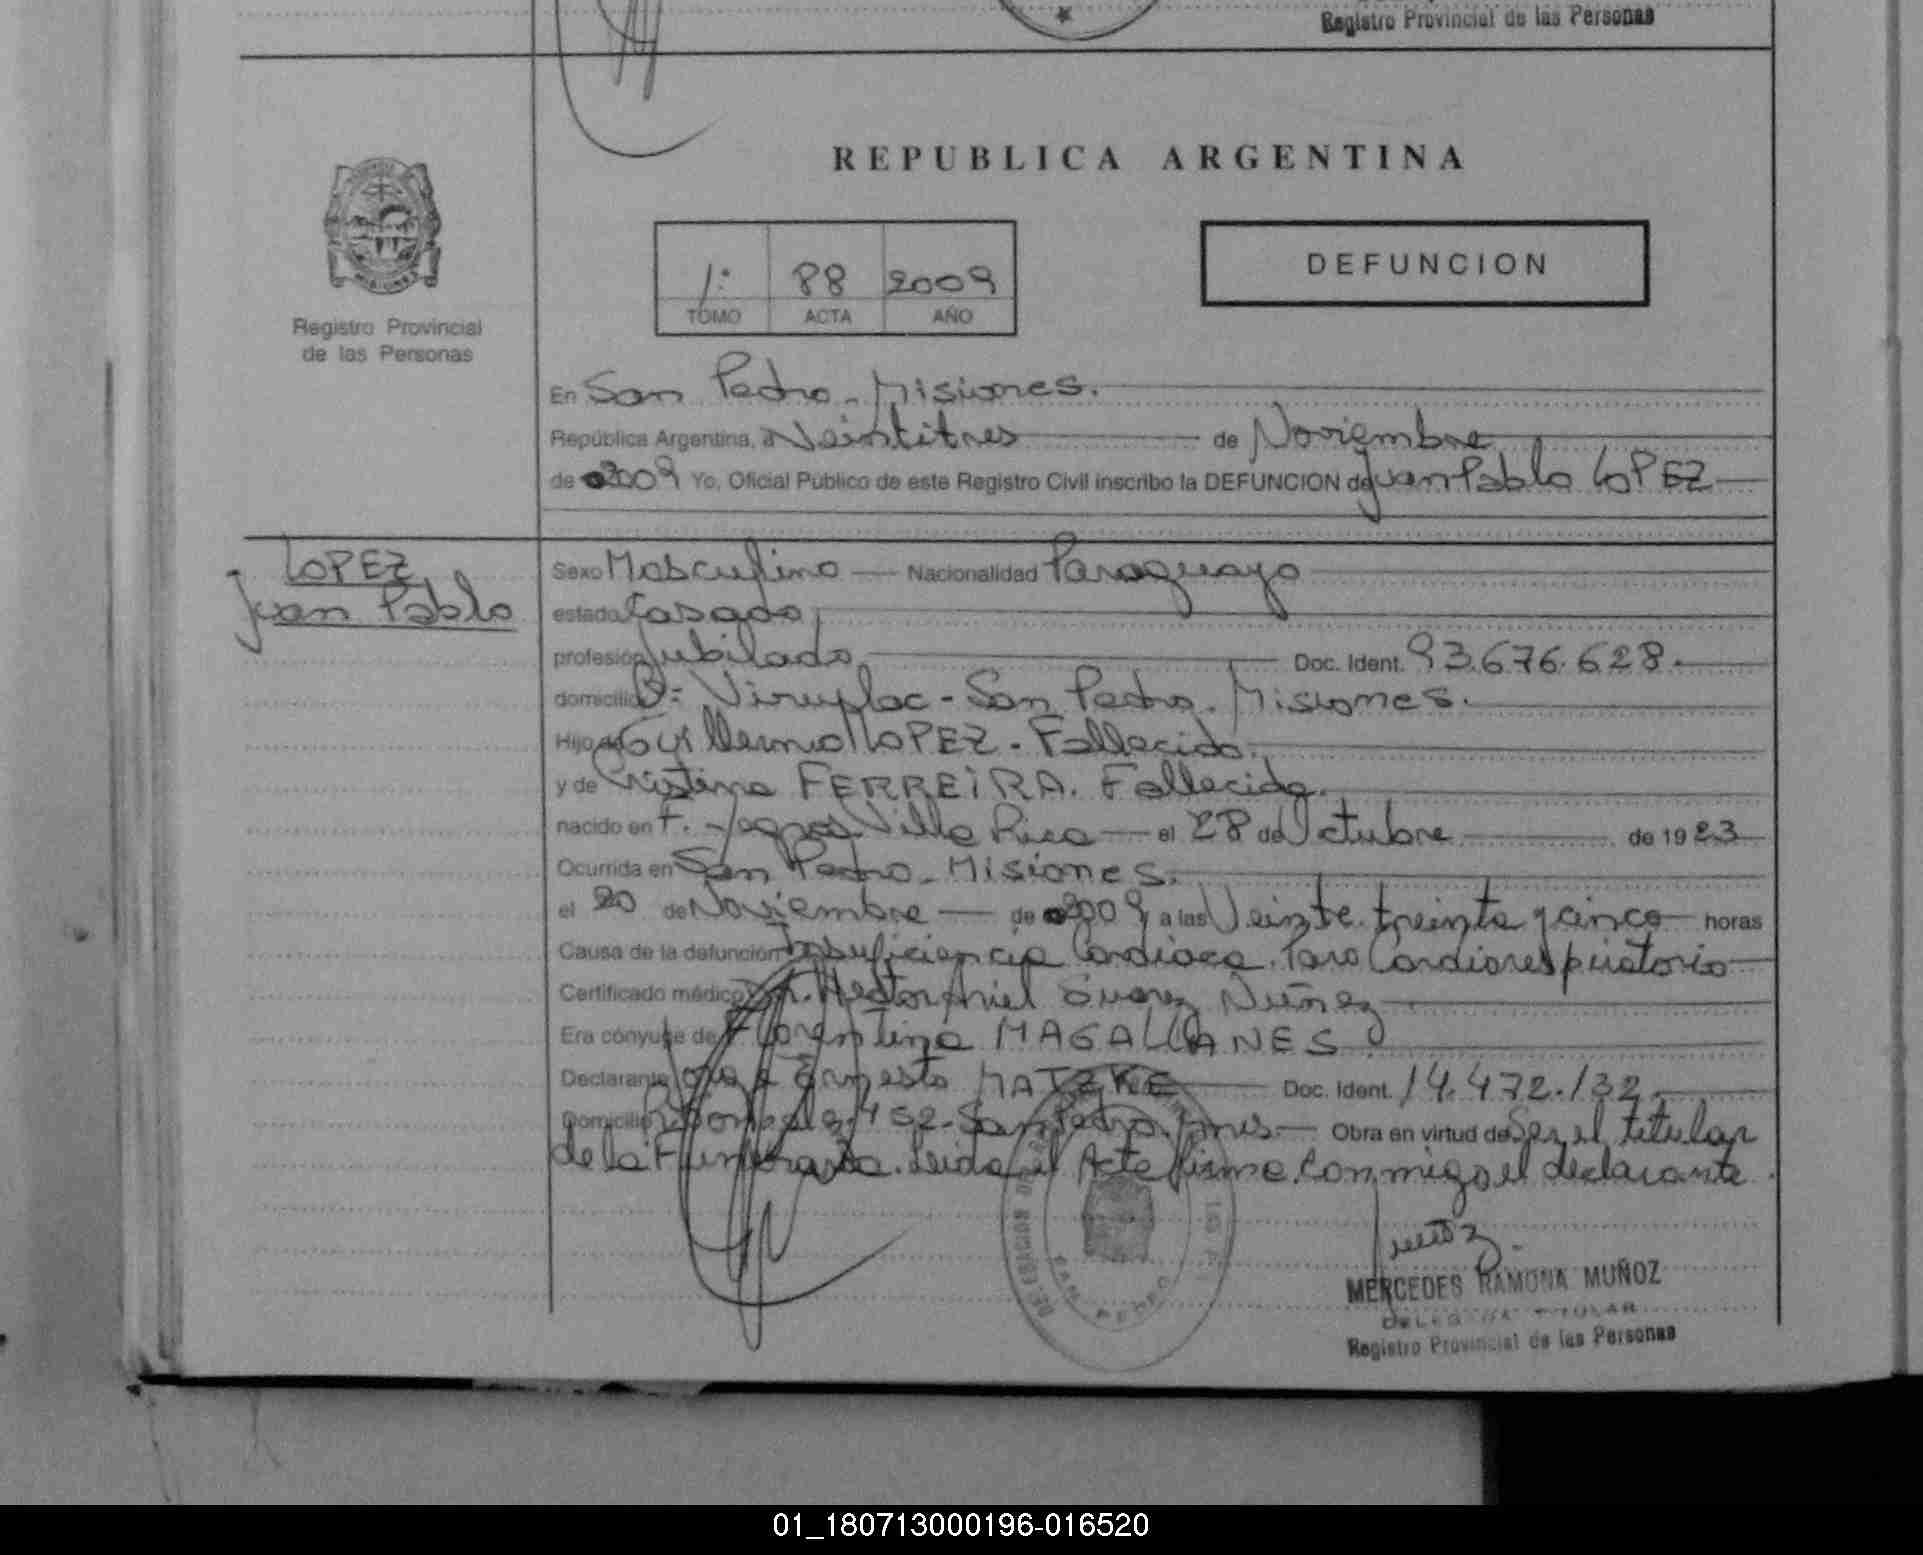 Registro Provincial de las Personas
REPUBLICA ARGENTINA
1: 88 2009
TOMO ACTA AÑO
DEFUNCION
Registro Provincial
de las Personas
En San Pedro - Misiones.
República Argentina, a Veintitres de Noviembre
de 2009 Yo, Oficial Público de este Registro Civil inscribo la DEFUNCION de Juan Pablo LOPEZ
LOPEZ
Juan Pablo
Sexo Masculino Nacionalidad Paraguayo
estado Casado
profesión Jubilado Doc. Ident. 93.676.628.
domicilio Bº: - San Pedro. Misiones.
Hijo de Guillermo LOPEZ. Fallecido.
y de Cristina FERREIRA. Fallecida.
nacido en F. Yegros Villa Rica el 28 de Octubre de 1923
Ocurrida en San Pedro - Misiones.
el 20 de Noviembre de 2009 a las Veinte treinta y cinco horas
Causa de la defunción Insuficiencia Cardiaca. Paro Cardiorespiratorio
Certificado médico Dr. Hector Ariel Suarez Nuñez
Era cónyuge de Florentina MAGALLANES
Declarante Ernesto MATZKE Doc. Ident. 14.472.132.
Domicilio 452 - San Pedro. Mnes. Obra en virtud de Ser el titular
de la Funeraria. Leida el Acta firma conmigo el declarante.
SAN PEDRO
MERCEDES RAMONA MUÑOZ
DELEGADA TITULAR
Registro Provincial de las Personas
01_180713000196-016520